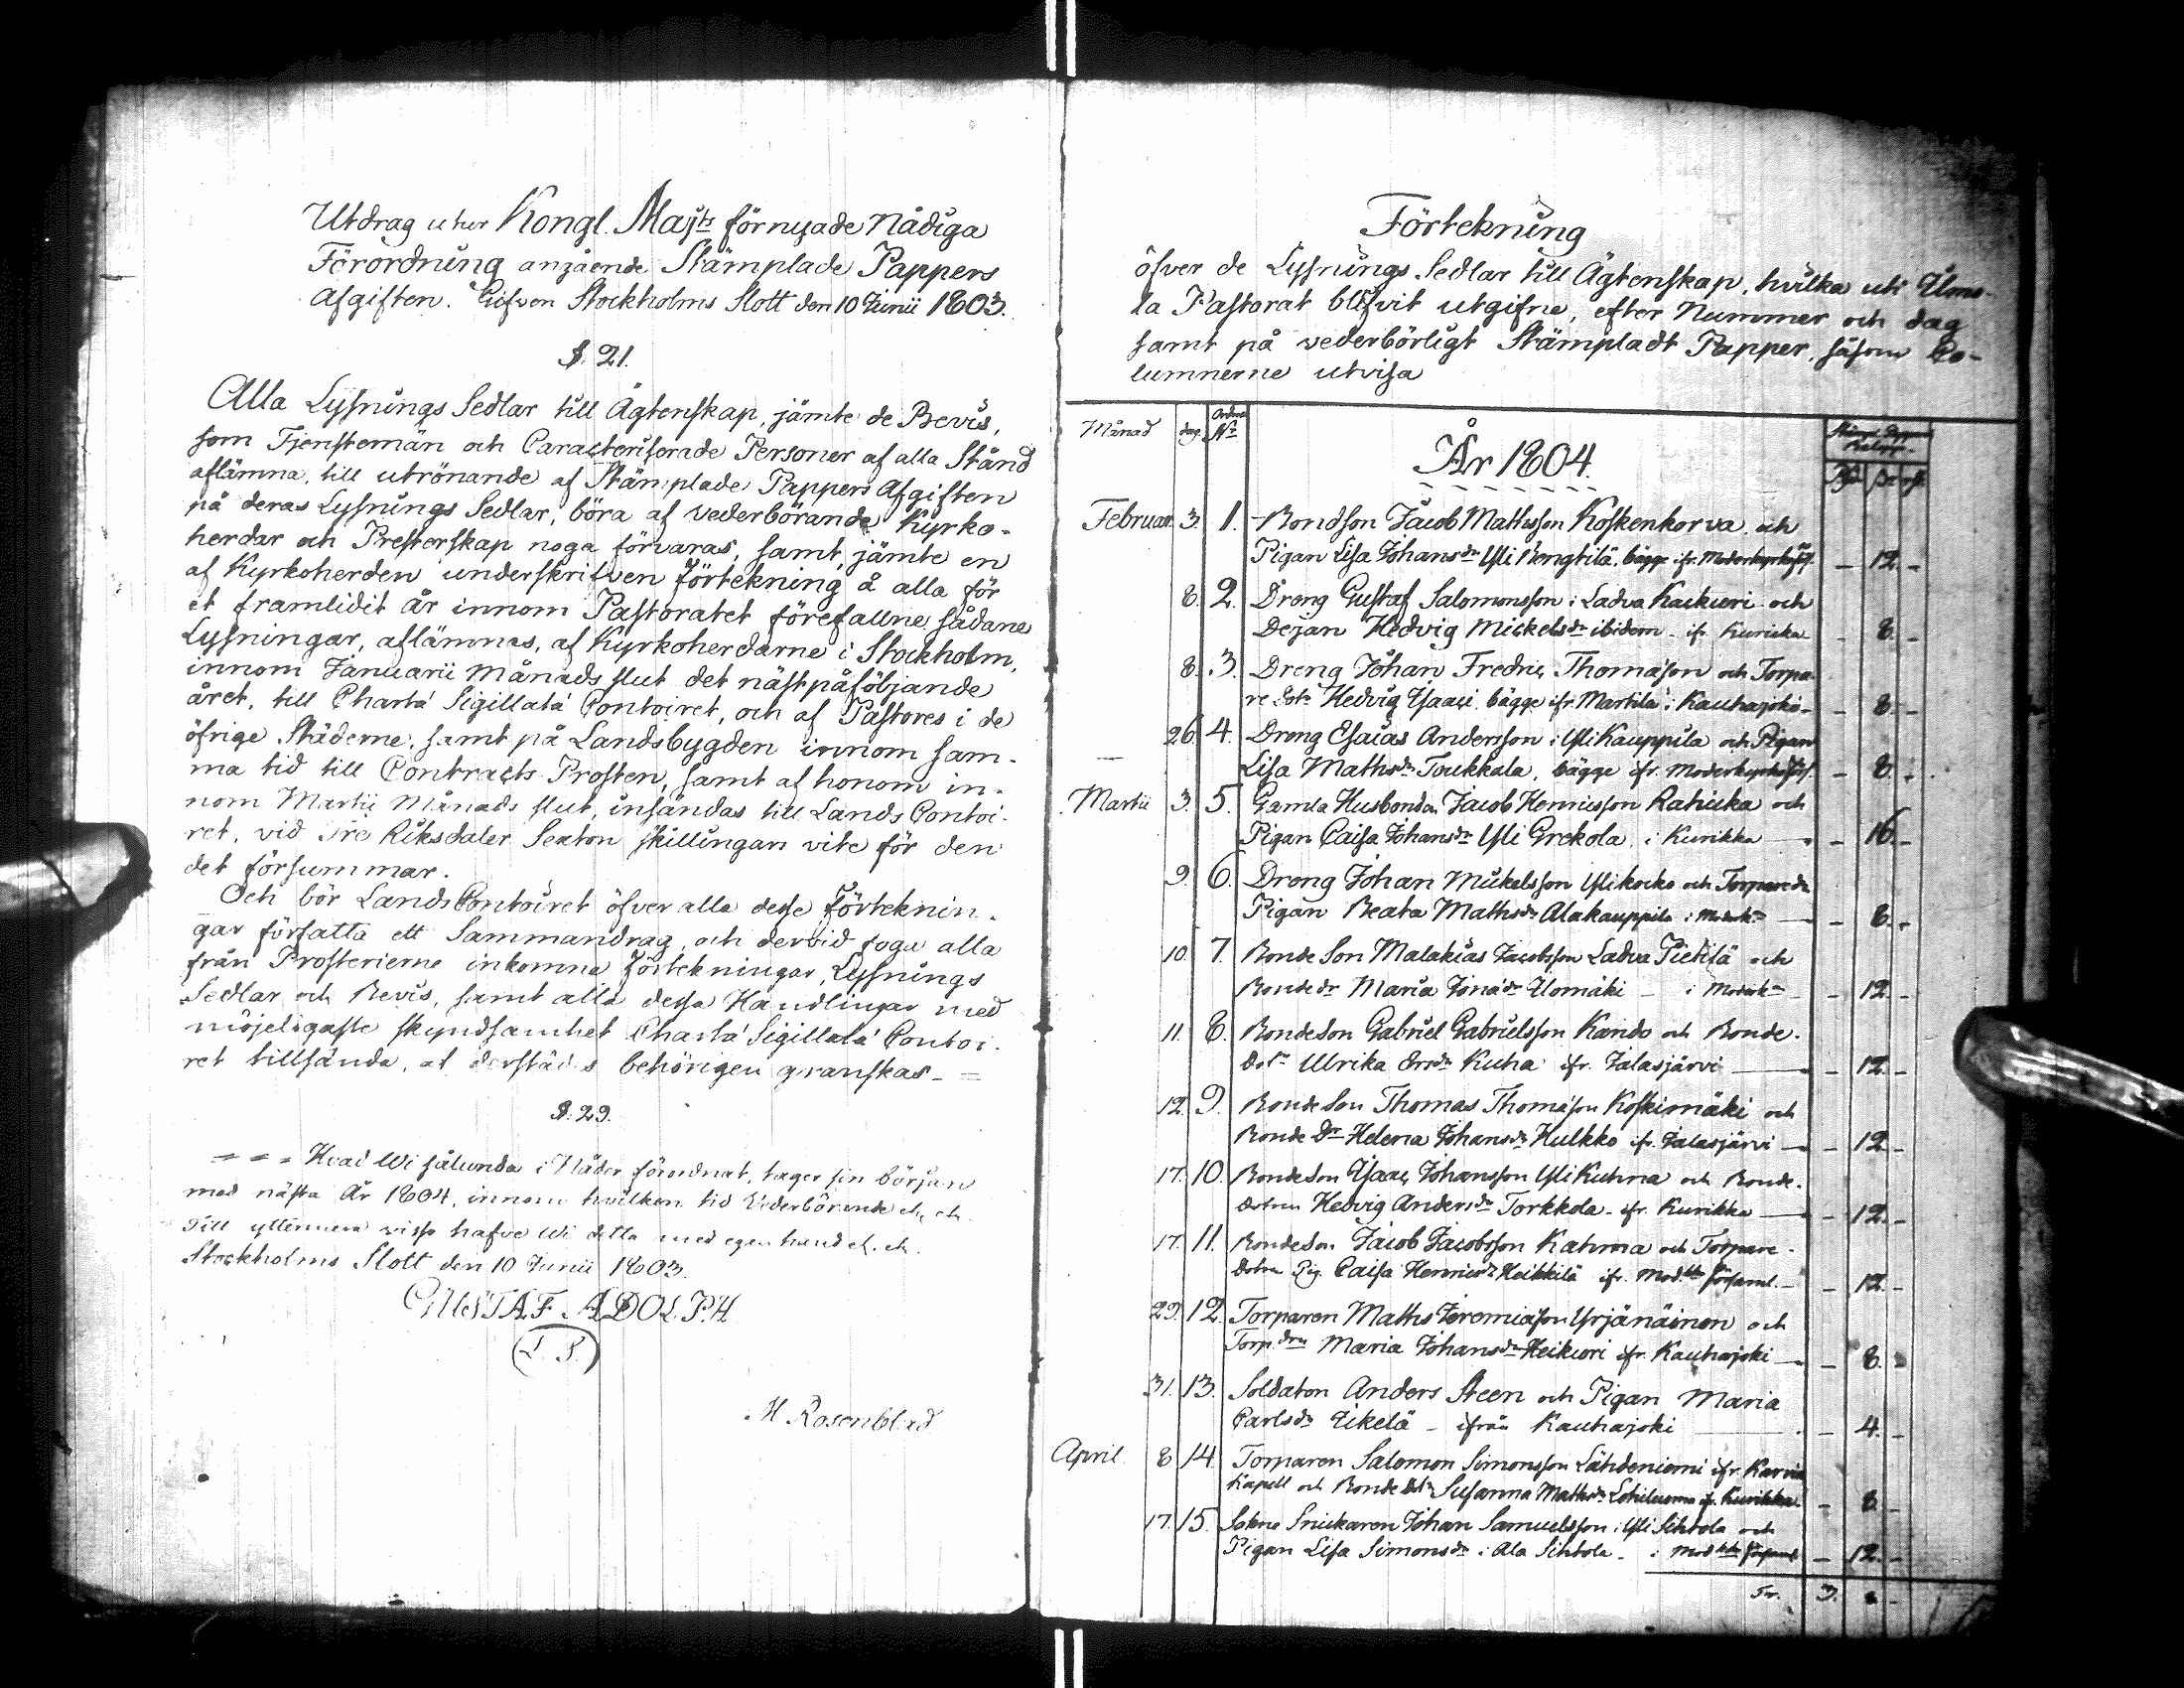 Utdrag utur Kongl. Majts förnyade Nådiga
Förordning angående Stämplade Pappers
Afgiften. Gifven Stockholms Slott den 10 Junii 1803.
§. 21.
Alla Lysnings Sedlar till Ägtenskap, jämte de Bevis,
som Tjenstemän och Caracteriserade Personer af alla Stånd
aflämna, till utrönande af Stämplade Pappers Afgiften
på deras Lysnings Sedlar, böra af vederbörande Kyrko-
herdar och Presterskap noga förvaras, samt, jämte en
af Kyrkoherden underskrifven Förtekning å alla för
et framlidit år innom Pastoratet förefallne sådane
Lysningar, aflämnas, af Kyrkoherdarne i Stockholm,
innom Januarii Månads slut det nästpåföljande
året, till Charta Sigillatá Contoiret, och af Pastores i de
öfrige Städerne, samt på Landsbygden innom sam-
ma tid till Contracts Prosten, samt af honom in-
nom Martii Månads slut, insändas till Lands Contoi-
ret, vid Tre Riksdaler Sexton skillingars vite för den
det försummar.
Och bör Lands Contoiret öfver alla desse Förteknin-
gar författa ett Sammandrag, och dervid foga alla
från Prosterierne inkomna Förtekningar, Lysnings
Sedlar och Bevis, samt alla dessa Handlingar med
möjeligaste skyndsamhet Charta Sigillatá Contoi-
ret tillsända, at derstädes behörigen granskas. =
§. 29.
= = = Hvad Wi sålunda i Nåder förordnat, tager sin början
med nästa År 1804, innom hvilken tid Vederbörande etc. etc.
Till yttermera visso hafve Wi detta med egen hand etc. etc.
Stockholms Slott den 10 Junii 1803.
GUSTAF ADOLPH
(L. S.)
M Rosenblad
Förtekning
öfver de Lysnings Sedlar till Ägtenskap, hvilka uti Ilmo-
la Pastorat blifvit utgifne, efter Nummer och dag
samt på vederbörligt Stämpladt Papper, såsom Co-
lumnerne utvisa
Månad dag Ordn. No År 1804.
Februar. 3. 1. Bondson Jacob Mathsson Koskenkorva och
Pigan Lisa Johansdr Yli Rengtilä, bägge ifr. Moderkyrko förs. – 12 –
8. 2. Dreng Gustaf Salomonsson i Ladva Kaikuri och
Dejan Hedvig Mickelsdr ibidem – ifr. Kuricka – 8. –
8. 3. Dreng Johan Fredric Thomasson och Torpa-
re Dotr Hedvig Isaaci, bägge ifr. Martila i Kauhajoki – – 8. –
26. 4. Dreng Esaias Andersson i Yli Kauppila och Pigan
Lisa Mathsdr Toukkala, bägge ifr. Moderkyrko förs. – 8. –
Martii 3. 5. Gamla Husbonden Jacob Henricsson Rahicka och
Pigan Caisa Johansdr Yli Grekola i Kurikka – – 16. –
9. 6. Dreng Johan Mickelsson Ylikocko och Torpare dr
Pigan Beata Mathsdr Alakauppila i Moderk. – 8. –
10. 7. Bonde Son Malakias Jacobsson Ladva Pietilä och
Bonde dr Maria Jonædr Ilomäki – i Moderk. – 12. –
11. 8. Bonde Son Gabriel Gabrielsson Kando och Bonde-
Dotr Ulrika Ersdr Kuha ifr. Jalasjärvi – – 12. –
12. 9. Bonde Son Thomas Thomasson Koskimäki och
Bonde Dr Helena Johansdr Hulkko ifr. Jalasjärvi – – 12. –
17. 10. Bonde Son Isaac Johansson Yli Kuhna och Bonde-
dotren Hedvig Andersdr Torkkola – ifr. Kurikka – – 12. –
17. 11. Bonde Son Jacob Jacobsson Kahma och Torpare-
Dotren Pig. Caisa Henricsdr Heikkilä ifr. Mod.kk Församl. – – 12. –
29. 12. Torparen Maths Jeremiasson Yrjänäinen och
Torp. drn Maria Johansdr Heikuri ifr. Kauhajoki – – 8. –
31. 13. Soldaten Anders Steen och Pigan Maria
Carlsdr Tikelä – ifrån Kauhajoki – 4. –
April 8 14. Torparen Salomon Simonsson Lähdeniemi ifr. Karvia
Kapell och Bonde Dotr Susanna Mathsdr Lohiluoma ifr. Kurikka – 8 –
17. 15. Sokne Snickaren Johan Samuelsson i Yli Sihtola och
Pigan Lisa Simonsdr i Ala Sihtola – i Mod.kk Församl. – 12. –
Tr. 3.